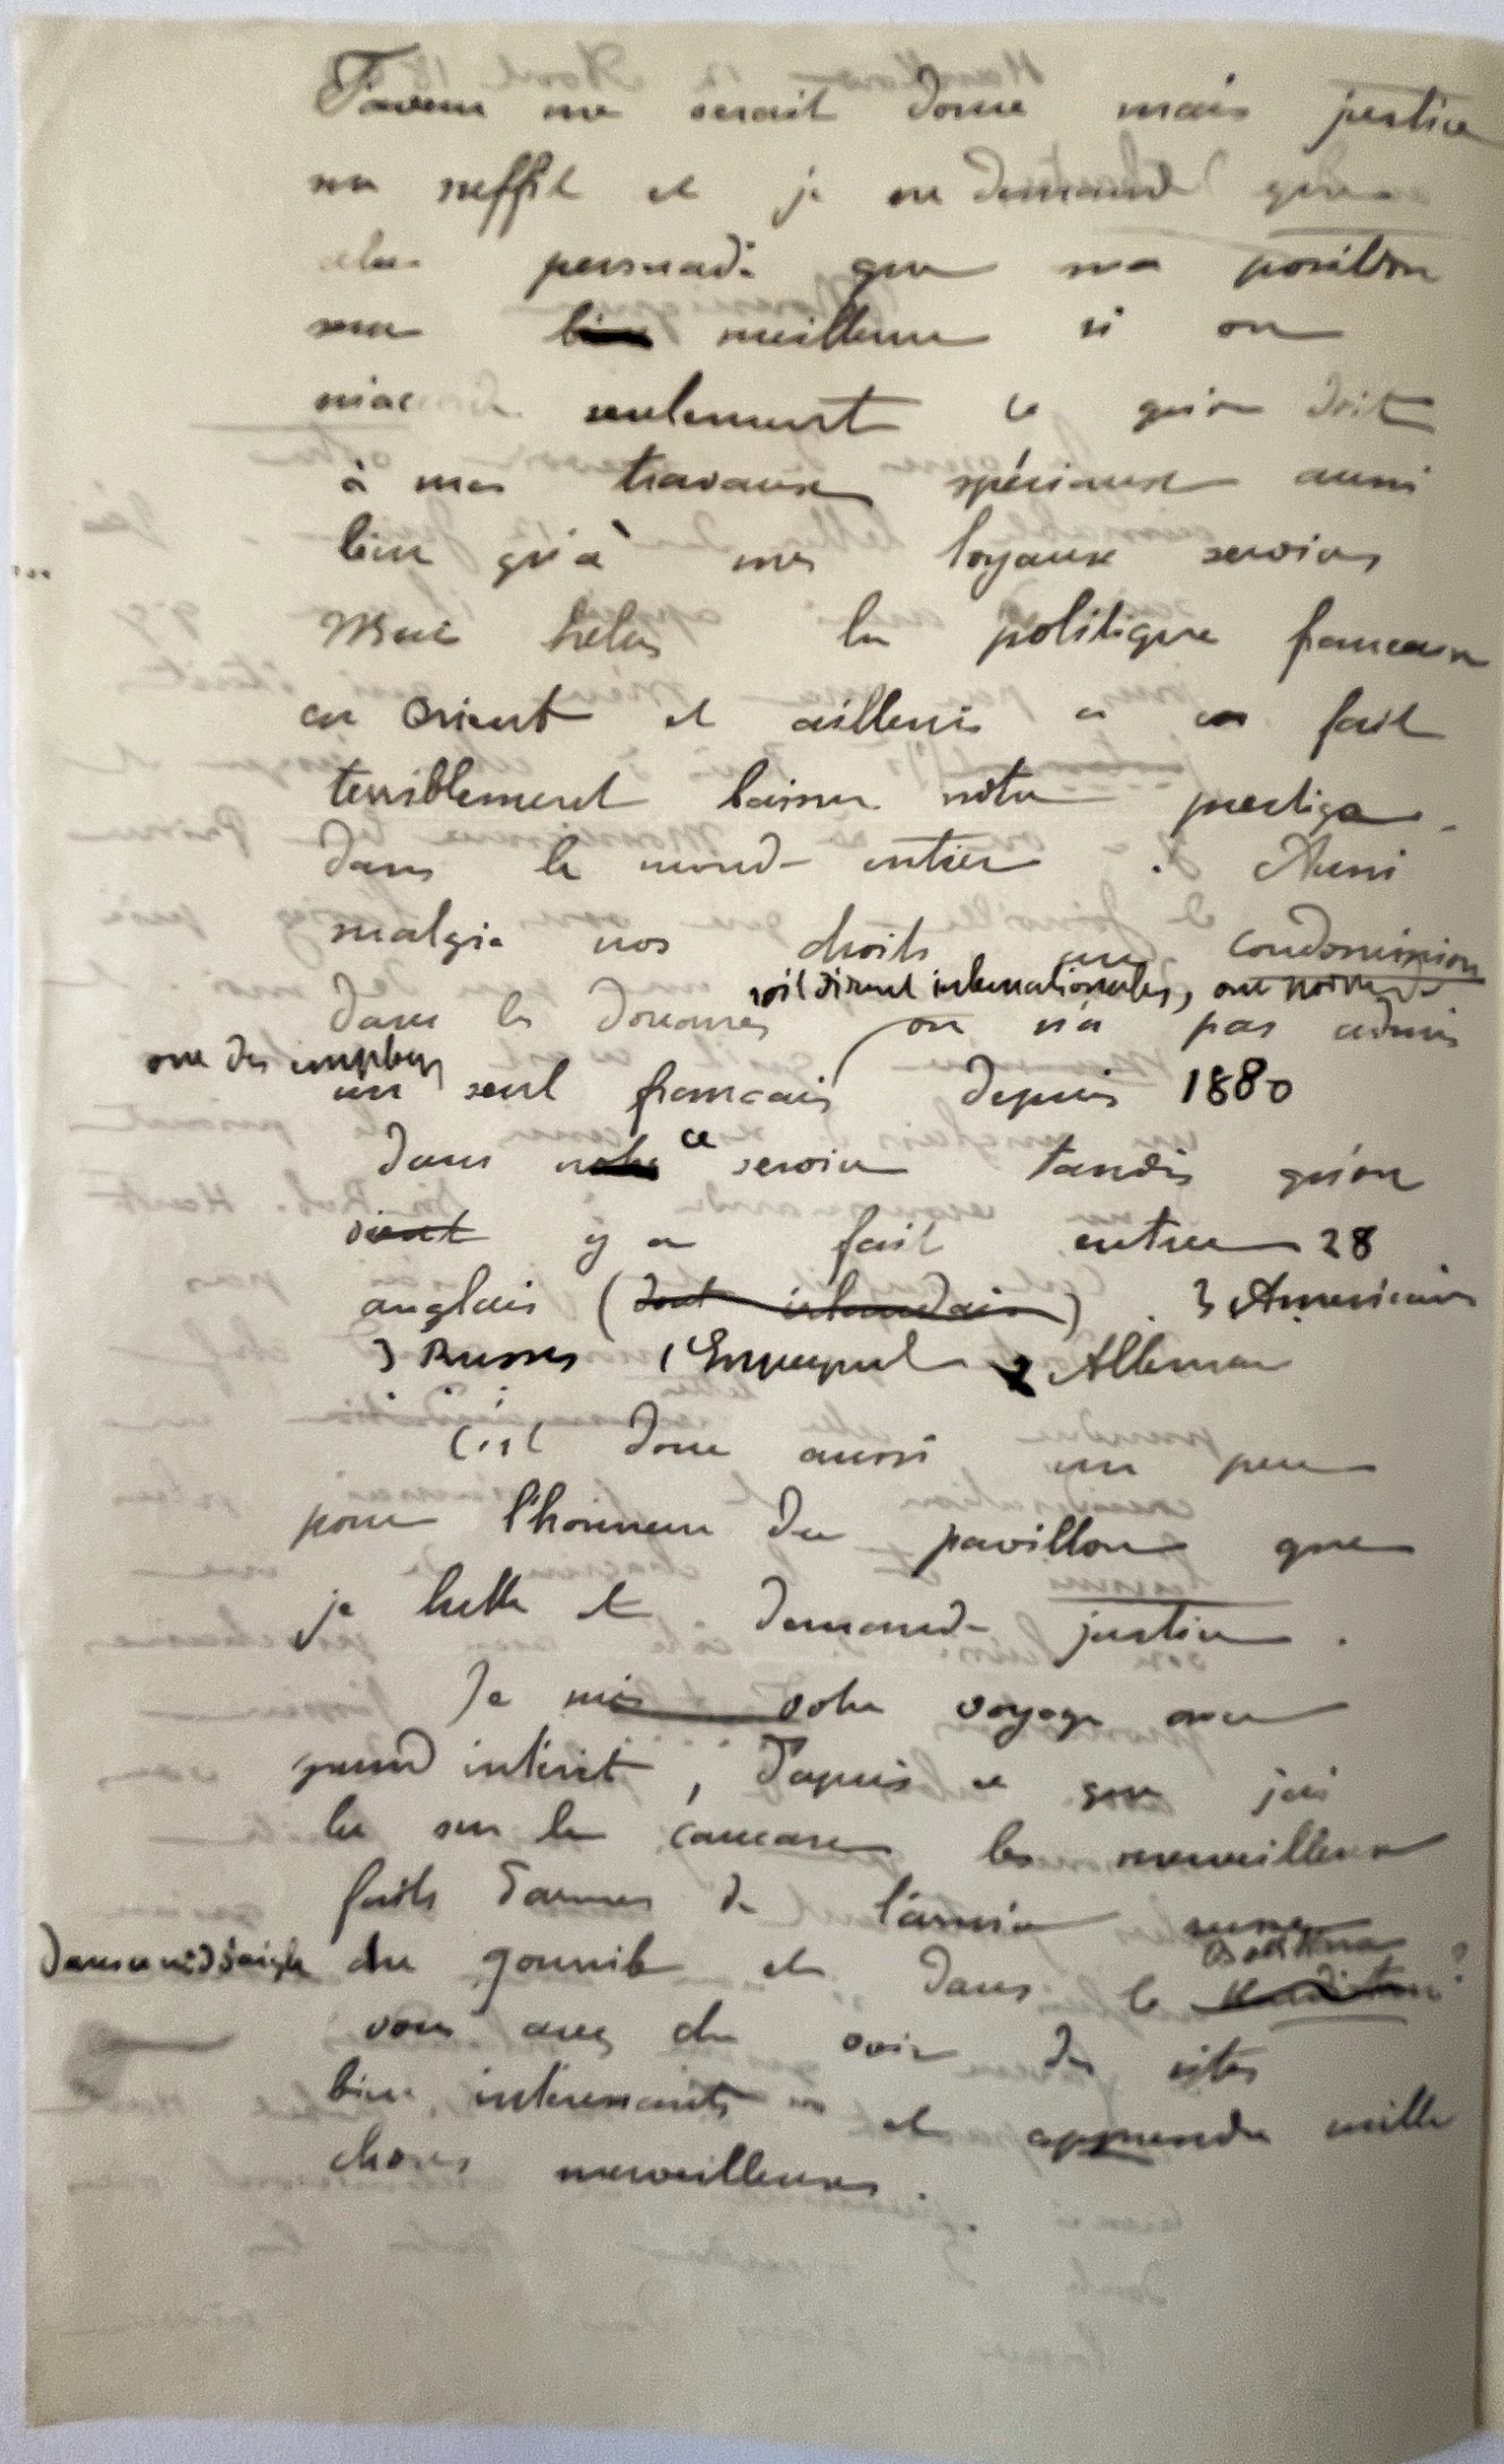 Faveur me serait donne mais justice
me suffit et je ne demande que
cela persuadé que ma position
sera bien meilleure si on
m'accorde seulement ce qu'on doit
à mes travaux spéciaux aussi
bien qu'à mes loyaux services
Mais helas la politique francaise
en Orient et ailleurs a fait
terriblement baisser notre prestige
dans le monde entier. Aussi
malgré nos droits au condominion
dans les douanes soit disant internationales, on n'a pas admis
un seul francais depuis 1880
dans notre ce service tandis qu'on
vient y a fait entrer 28
anglais (dont irlandais). 3 Americains
3 Russes 1 Espagnol 2 Alleman
C'est donc aussi un peu
pour l'honneur du pavillon que
je lutte et demande justice.
Je suis votre voyage avec
grand intérêt, d'apres ce que j'ai
lu sur le Caucase les merveilleux
faits d'armes de l'armée russe
dans ce nid d'aigle du gounib et dans le
vous avez du voir des sites
bien interessants et apprendre mille
choses merveilleuses.